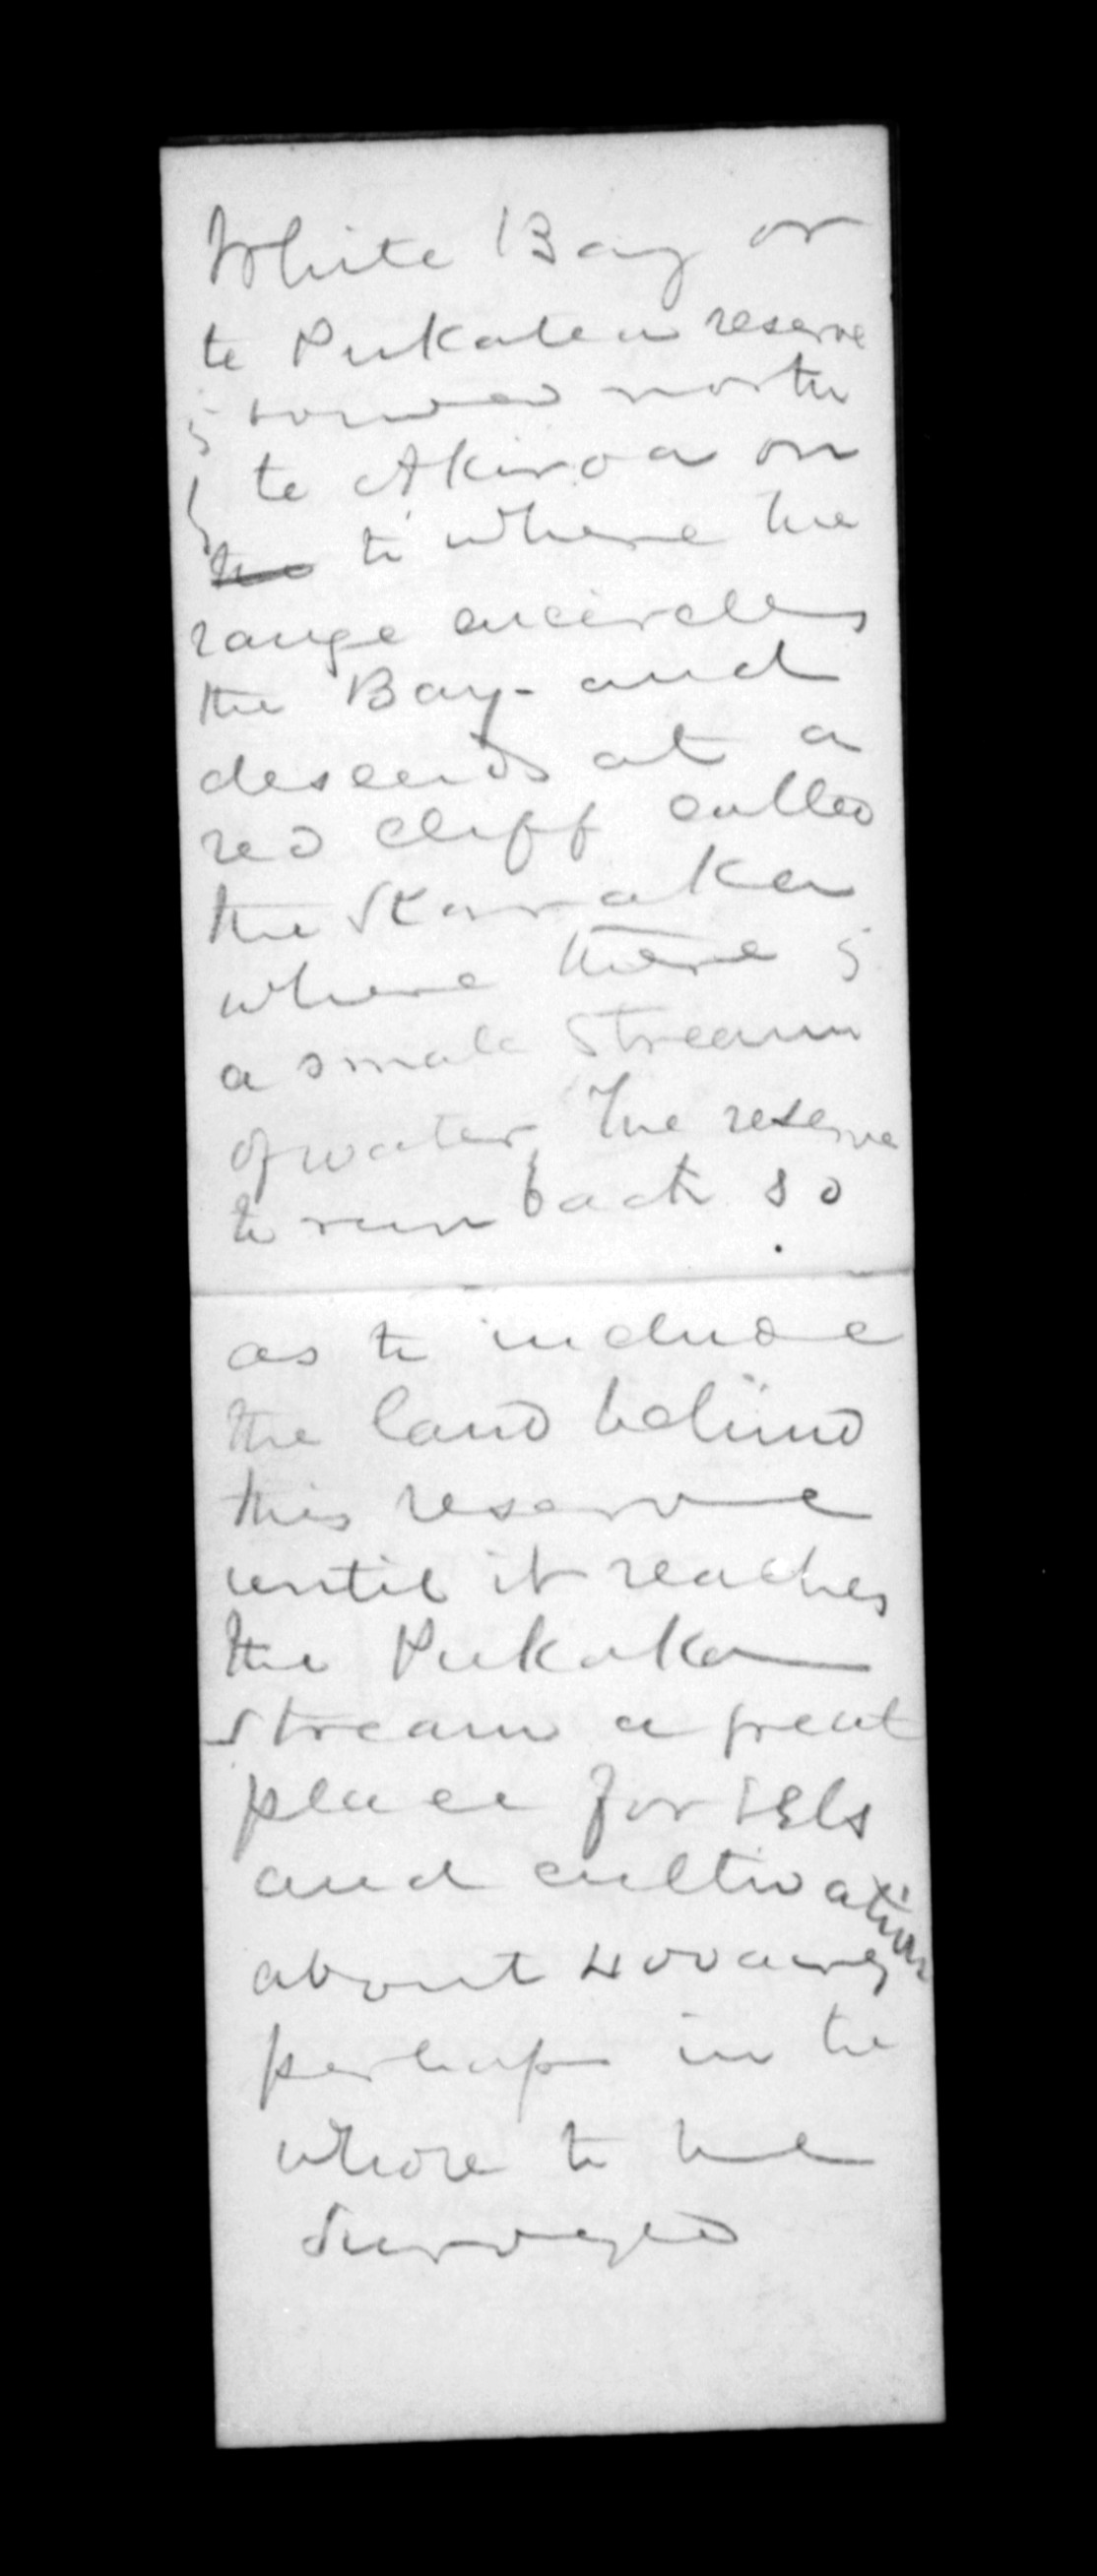 White Bay or
te Pukatea reserve
is bounded north
te Akiroa on
the to where the
range encircles
the Bay - and
descends at a
red cliff called
the Karaka
where there is
a small stream
of water, The reserve
to run back so
as to include
the land behind
this reserve
until it reaches
the Pukaka
stream a great
place for Eels
and cultivation
about 400 acres
perhaps in the
whole to be
surveyed